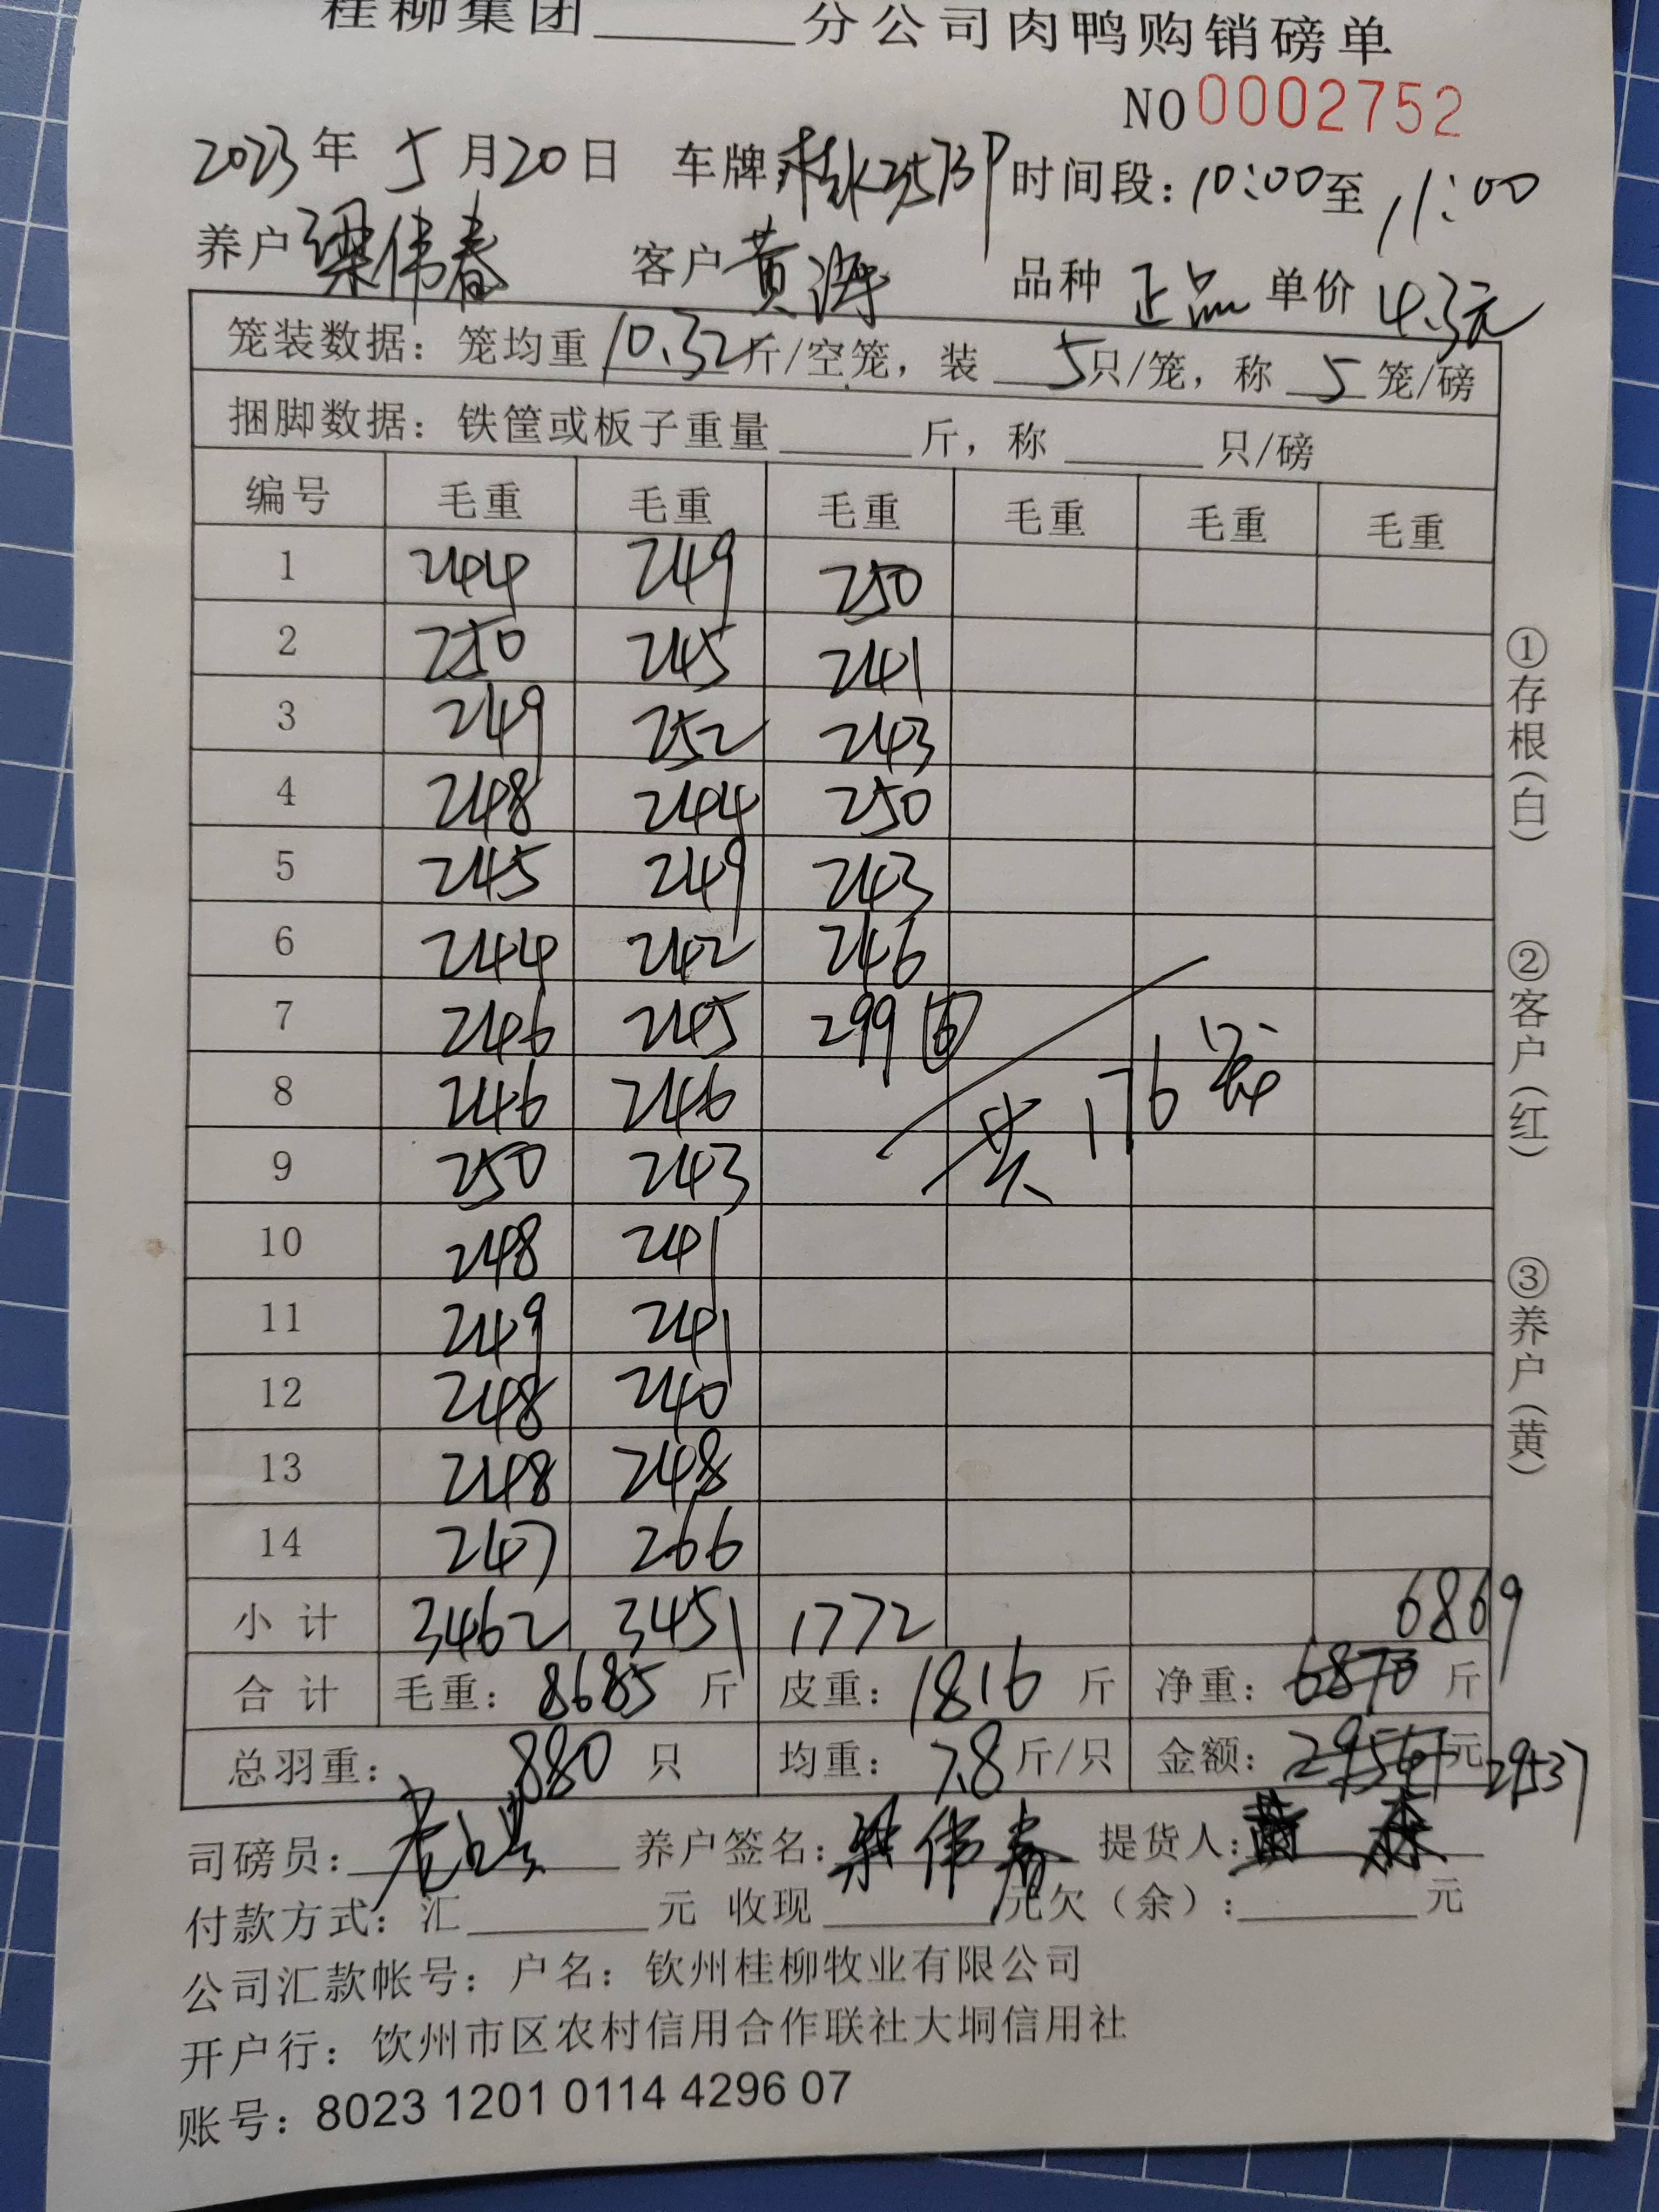 桂柳集团______分公司肉鸭购销磅单
NO 0002752
2023年 5月20日 车牌 时间段：10:00至11:00
养户 梁伟春 客户 黄涛 品种 正品 单价 4.3元
笼装数据：笼均重10.32斤/空笼，装 5只/笼，称 5 笼/磅
捆脚数据：铁筐或板子重量______斤，称______只/磅
编号 毛重 毛重 毛重 毛重 毛重 毛重
1 244 249 250
2 250 245 241
3 249 252 243
4 248 244 250
5 245 249 243
6 244 242 246
7 246 245 299 ⑥
8 246 246 共176笼
9 250 243
10 248 241
11 249 241
12 248 240
13 248 248
14 247 266
小计 3462 3451 1772 6869
合计 毛重：8685 斤 皮重：1816 斤 净重：6870 斤
总羽重：880 只 均重：7.8 斤/只 金额：元 29537
司磅员： 养户签名：梁伟春 提货人：
付款方式：汇______元 收现______元欠（余）：______元
公司汇款帐号：户名：钦州桂柳牧业有限公司
开户行：钦州市区农村信用合作联社大垌信用社
账号：8023 1201 0114 4296 07
①存根（白） ②客户（红） ③养户（黄）